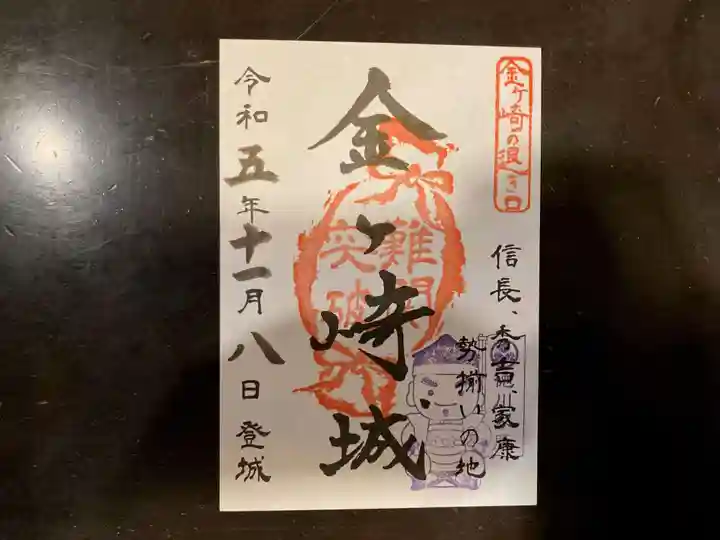 金ヶ崎の退き口
信長、秀吉、徳川家康
勢揃いの地
金ヶ崎城
難関
突破
令和五年十一月八日登城